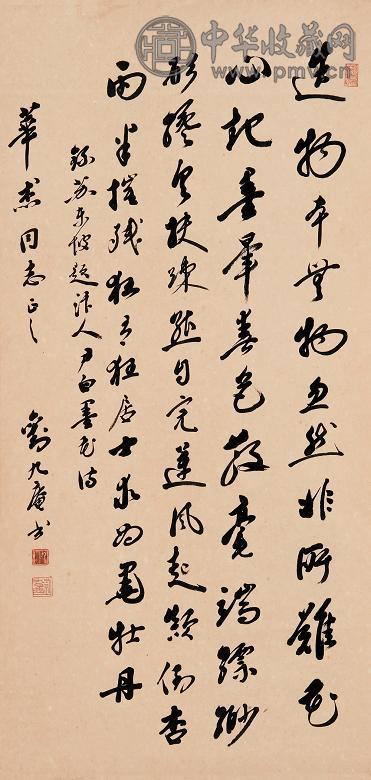 中华收藏网
www.pmv.cn
造物本無物忽然非所難花
心起墨暈春色散毫端縹緲
形纔具扶疎態自完蓮風起顛倒杏
雨半摧殘獨有狂居士求為黑牡丹
錄蘇東坡題汴人尹白墨花詩
華杰同志正之
劉九庵書